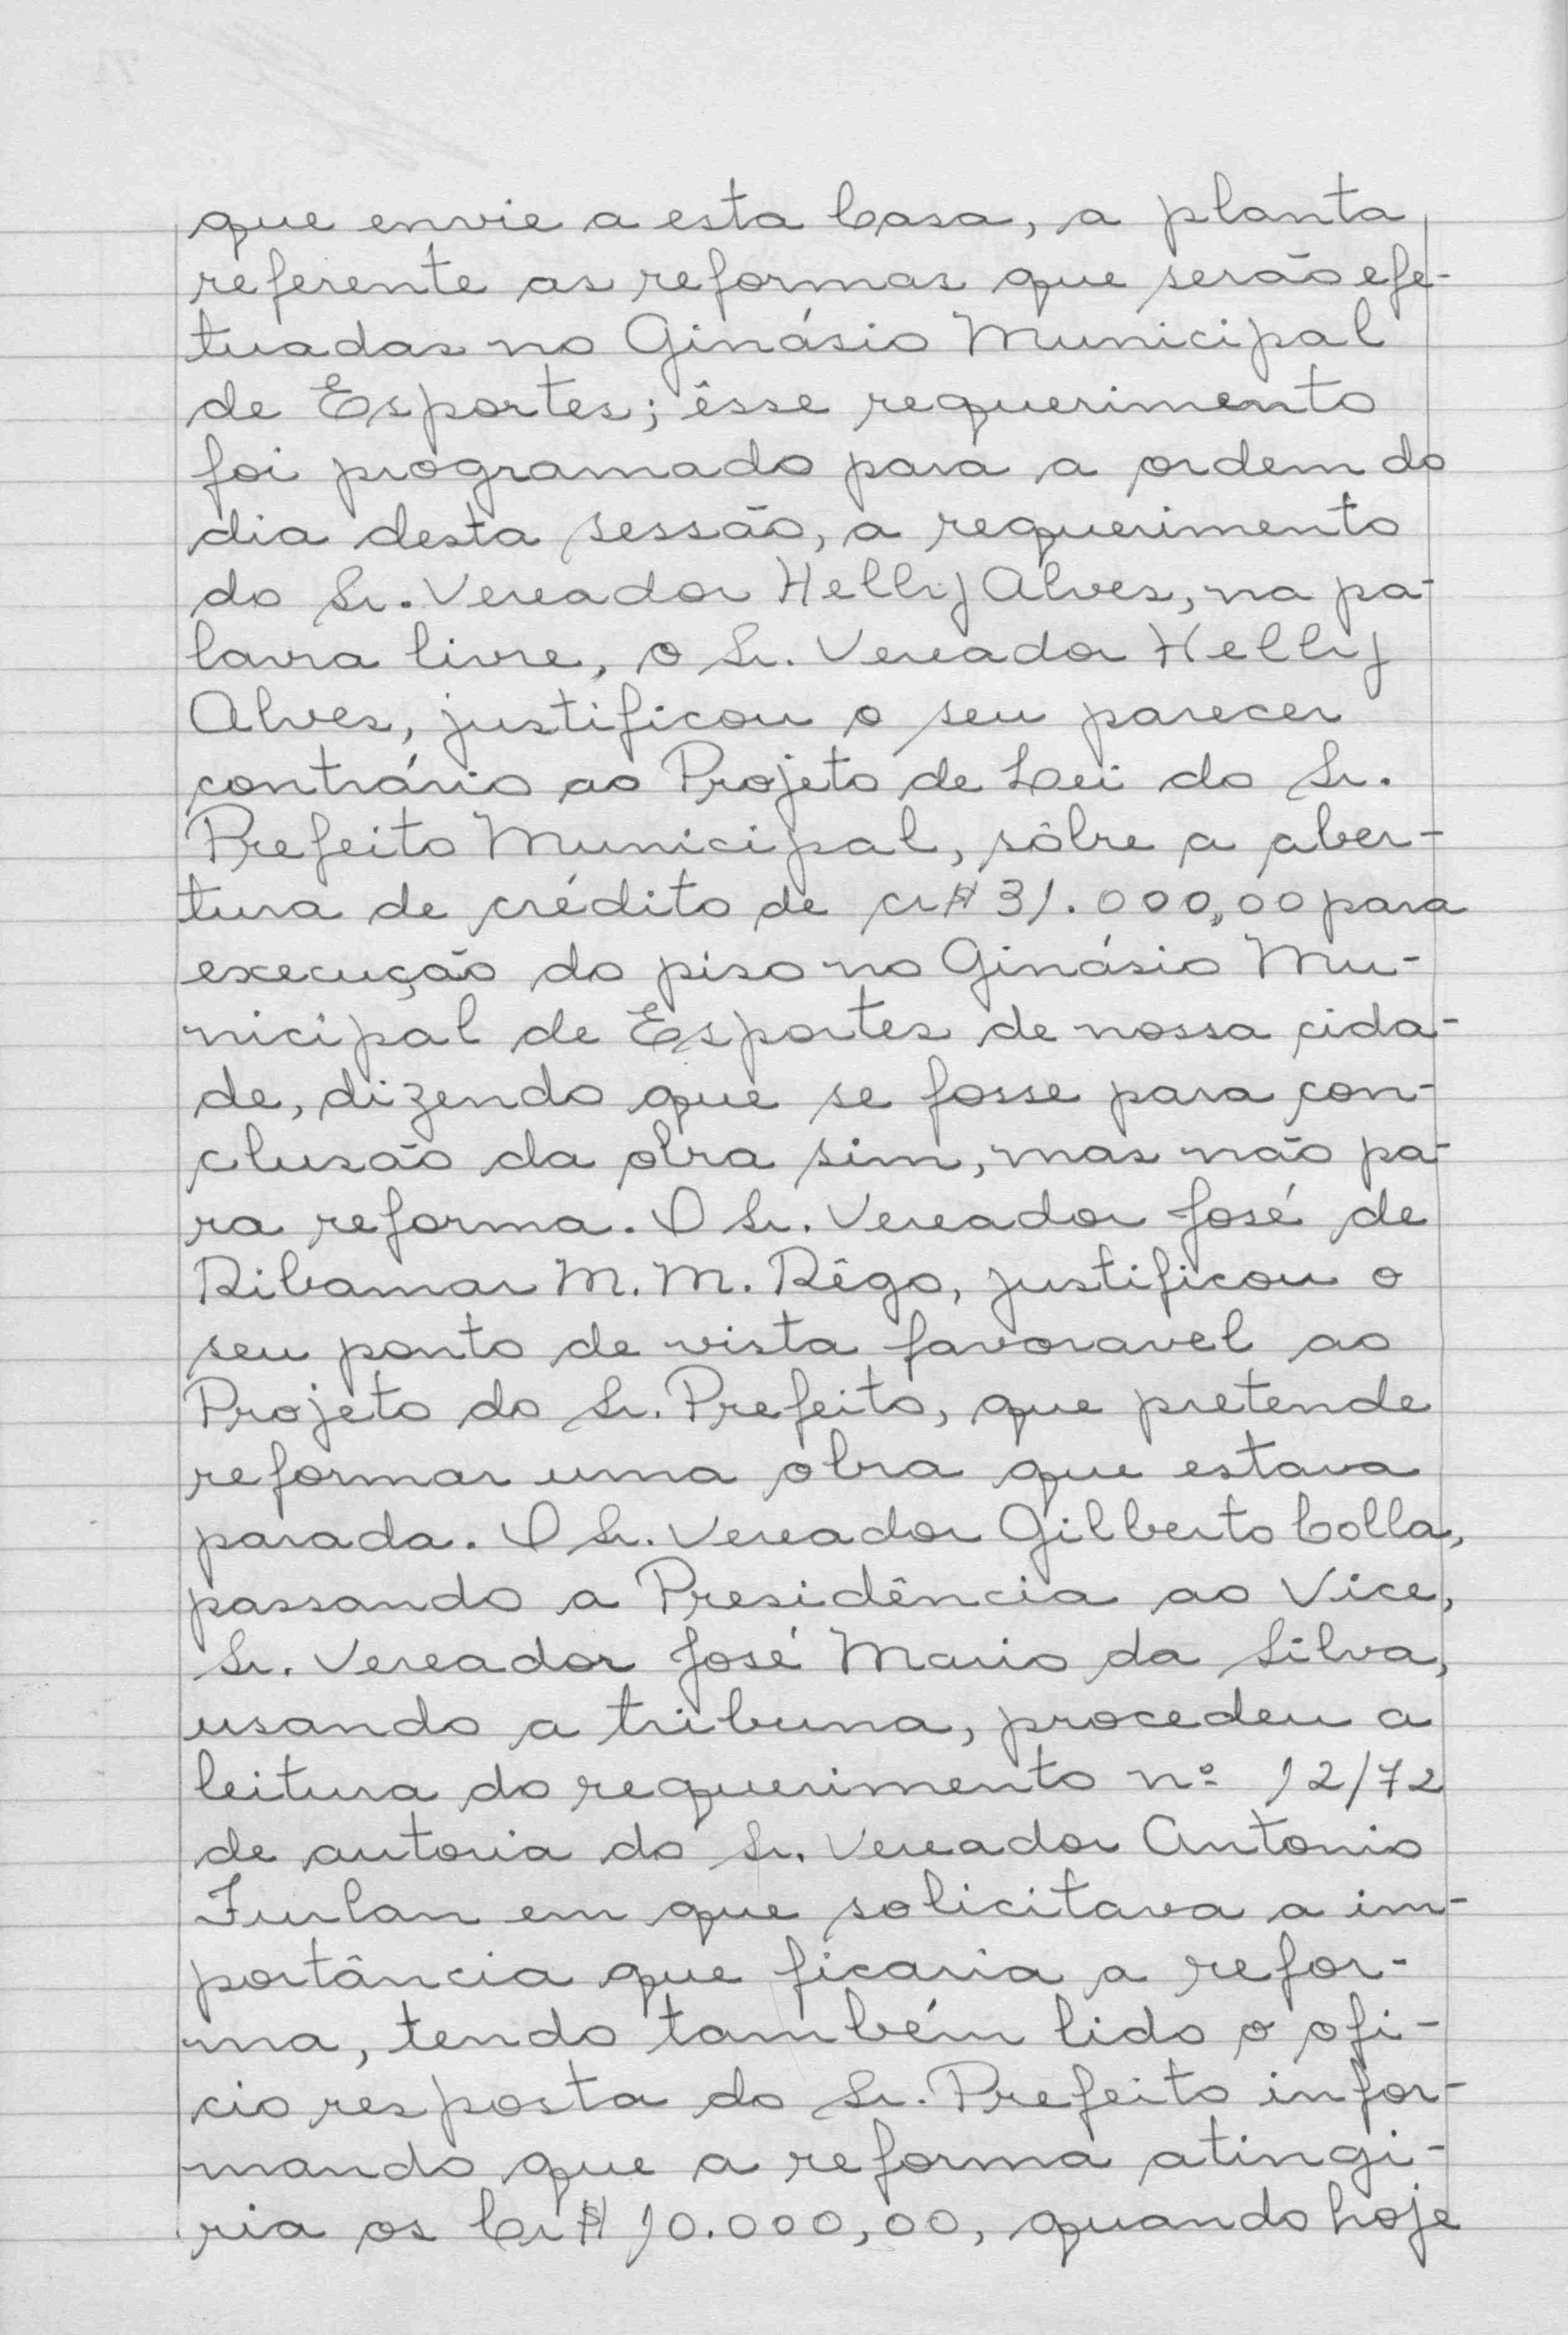 que envie a esta Casa, a planta
referente as reformas que serão efe-
tuadas no Ginásio Municipal
de Esportes; êsse requerimento
foi programado para a ordem do
dia desta sessão, a requerimento
do Sr. Vereador Helly Alves, na pa-
lavra livre, o Sr. Vereador Helly
Alves, justificou o seu parecer
contrário ao Projeto de Lei do Sr.
Prefeito Municipal, sôbre a aber-
tura de crédito de cr$ 31.000,00 para
execução do piso no Ginásio Mu-
nicipal de Esportes de nossa cida-
de, dizendo que se fosse para con-
clusão da obra sim, mas não pa-
ra reforma. O Sr. Vereador José de
Ribamar M. M. Rêgo, justificou o
seu ponto de vista favoravel ao
Projeto do Sr. Prefeito, que pretende
reformar uma obra que estava
parada. O Sr. Vereador Gilberto Colla,
passando a Presidência ao Vice,
Sr. Vereador José Mario da Silva,
usando a tribuna, procedeu a
leitura do requerimento nº 12/72
de autoria do Sr. Vereador Antonio
Furlan em que solicitava a im-
portância que ficaria a refor-
ma, tendo também lido o ofi-
cio resposta do Sr. Prefeito infor-
mando que a reforma atingi-
ria os Cr$ 10.000,00, quando hoje